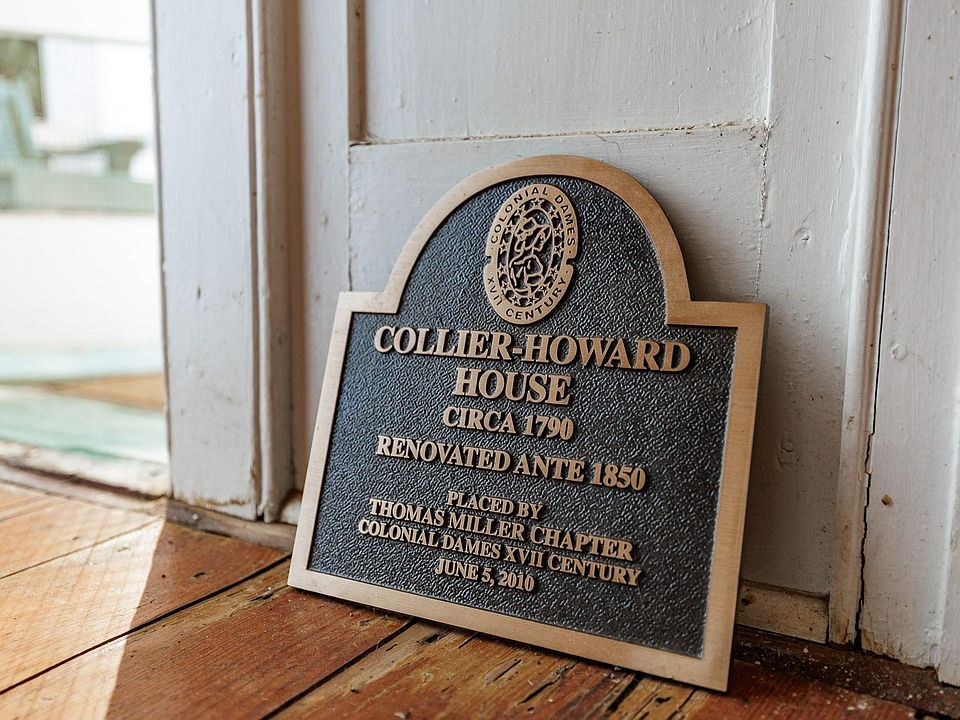 COLONIAL DAMES
XVII CENTURY
COLLIER-HOWARD
HOUSE
CIRCA 1790
RENOVATED ANTE 1850
PLACED BY
THOMAS MILLER CHAPTER
COLONIAL DAMES XVII CENTURY
JUNE 5, 2010